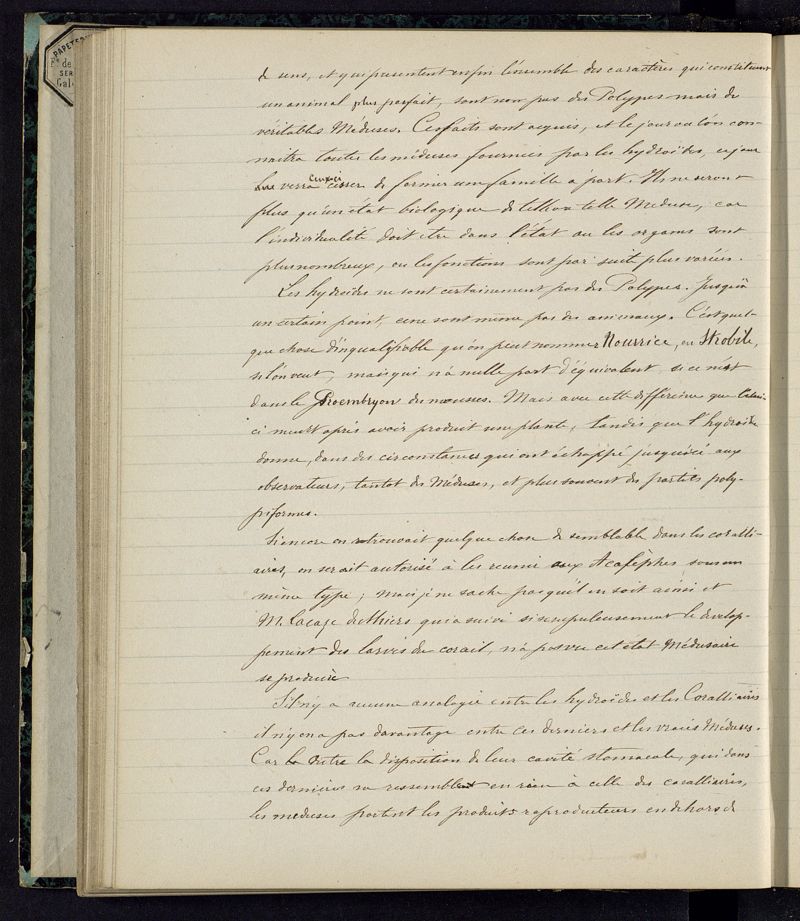 PAPETERIE
Fe de
SER
Gal
de uns, et qui présentent enfin l'ensemble des caractères qui constituent
un animal plus parfait, sont non pas des Polypes mais de
véritables Méduses. Ces faits sont acquis, et le jour où l'on con-
naitra toutes les méduses fournies par les hydroïdes, ce jour
verra ceux-ci cesser de former une famille à part. Ils ne seront
plus qu'un état biologique de telle ou telle Méduse, car
l'individualité doit être dans l'état où les organes sont
plus nombreux, ou les fonctions sont par suite plus variées.
Les hydroïdes ne sont certainement pas des Polypes. Jusqu'à
un certain point, ce ne sont même pas des animaux. C'est quel-
que chose d'inqualifiable qu'on peut nommer Nourrice, ou Strobile,
si l'on veut, mais qui n'a nulle part d'équivalent, si ce n'est
dans le Proembryon des mousses. Mais avec cette différence que celui-
ci meurt après avoir produit une plante, tandis que l'hydroïde
donne, dans des circonstances qui ont échappé jusqu'ici aux
observateurs, tantot des Méduses, et plus souvent des parties poly-
piformes.
Si encore on retrouvait quelque chose de semblable dans les coralli-
aires, on serait autorisé à les reunir aux Acalèphes sous un
même type; mais je ne sache pas qu'il en soit ainsi et
M. Lacaze Duthiers qui a suivi si scrupuleusement le develop-
pement des larves du corail, n'a pas vu cet état Médusaire
se produire
S'il n'y a aucune analogie entre les hydroïdes et les Coralliaires
il n'y en a pas davantage entre ces derniers et les vraies Méduses.
Car outre la disposition de leur cavité stomacale, qui dans
ces dernières ne ressemblent en rien à celle des coralliaires,
les meduses portent les produits reproducteurs en dehors de